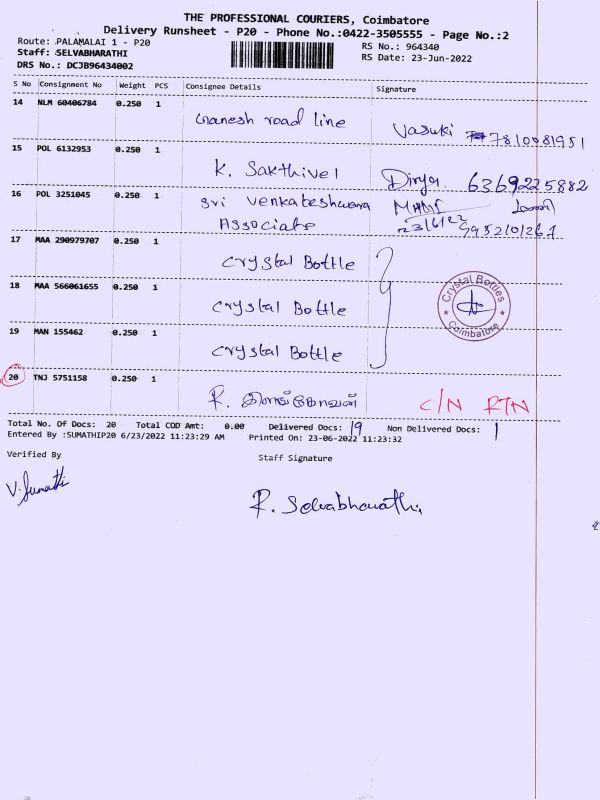 THE PROFESSIONAL COURIERS, Coimbatore
Delivery Runsheet - P20 - Phone No.:0422-3505555 - Page No.:2
Route: PALAMALAI 1 - P20
RS No.: 964340
Staff: SELVABHARATHI
RS Date: 23-Jun-2022
DRS No.: DCJB96434002
S No Consignment No Weight PCS Consignee Details Signature
14 NLM 60406784 0.250 1
Ganesh road line Vasuki 7810081951
15 POL 6132953 0.250 1
K. Sakthivel Divya 6369225882
16 POL 3251045 0.250 1
Sri Venkateshwara
Associate 23/6/22 9952101267
17 MAA 290979707 0.250 1
Crystal Bottle
18 MAA 566061655 0.250 1
Crystal Bottle
Crystal Bottles
Coimbatore
19 MAN 155462 0.250 1
Crystal Bottle
20 TNJ 5751158 0.250 1
R. C/N RTN
Total No. Of Docs: 20 Total COD Amt: 0.00 Delivered Docs: 19 Non Delivered Docs: 1
Entered By :SUMATHIP20 6/23/2022 11:23:29 AM Printed On: 23-06-2022 11:23:32
Verified By Staff Signature
V. Sumathi
R. Selvabharathi